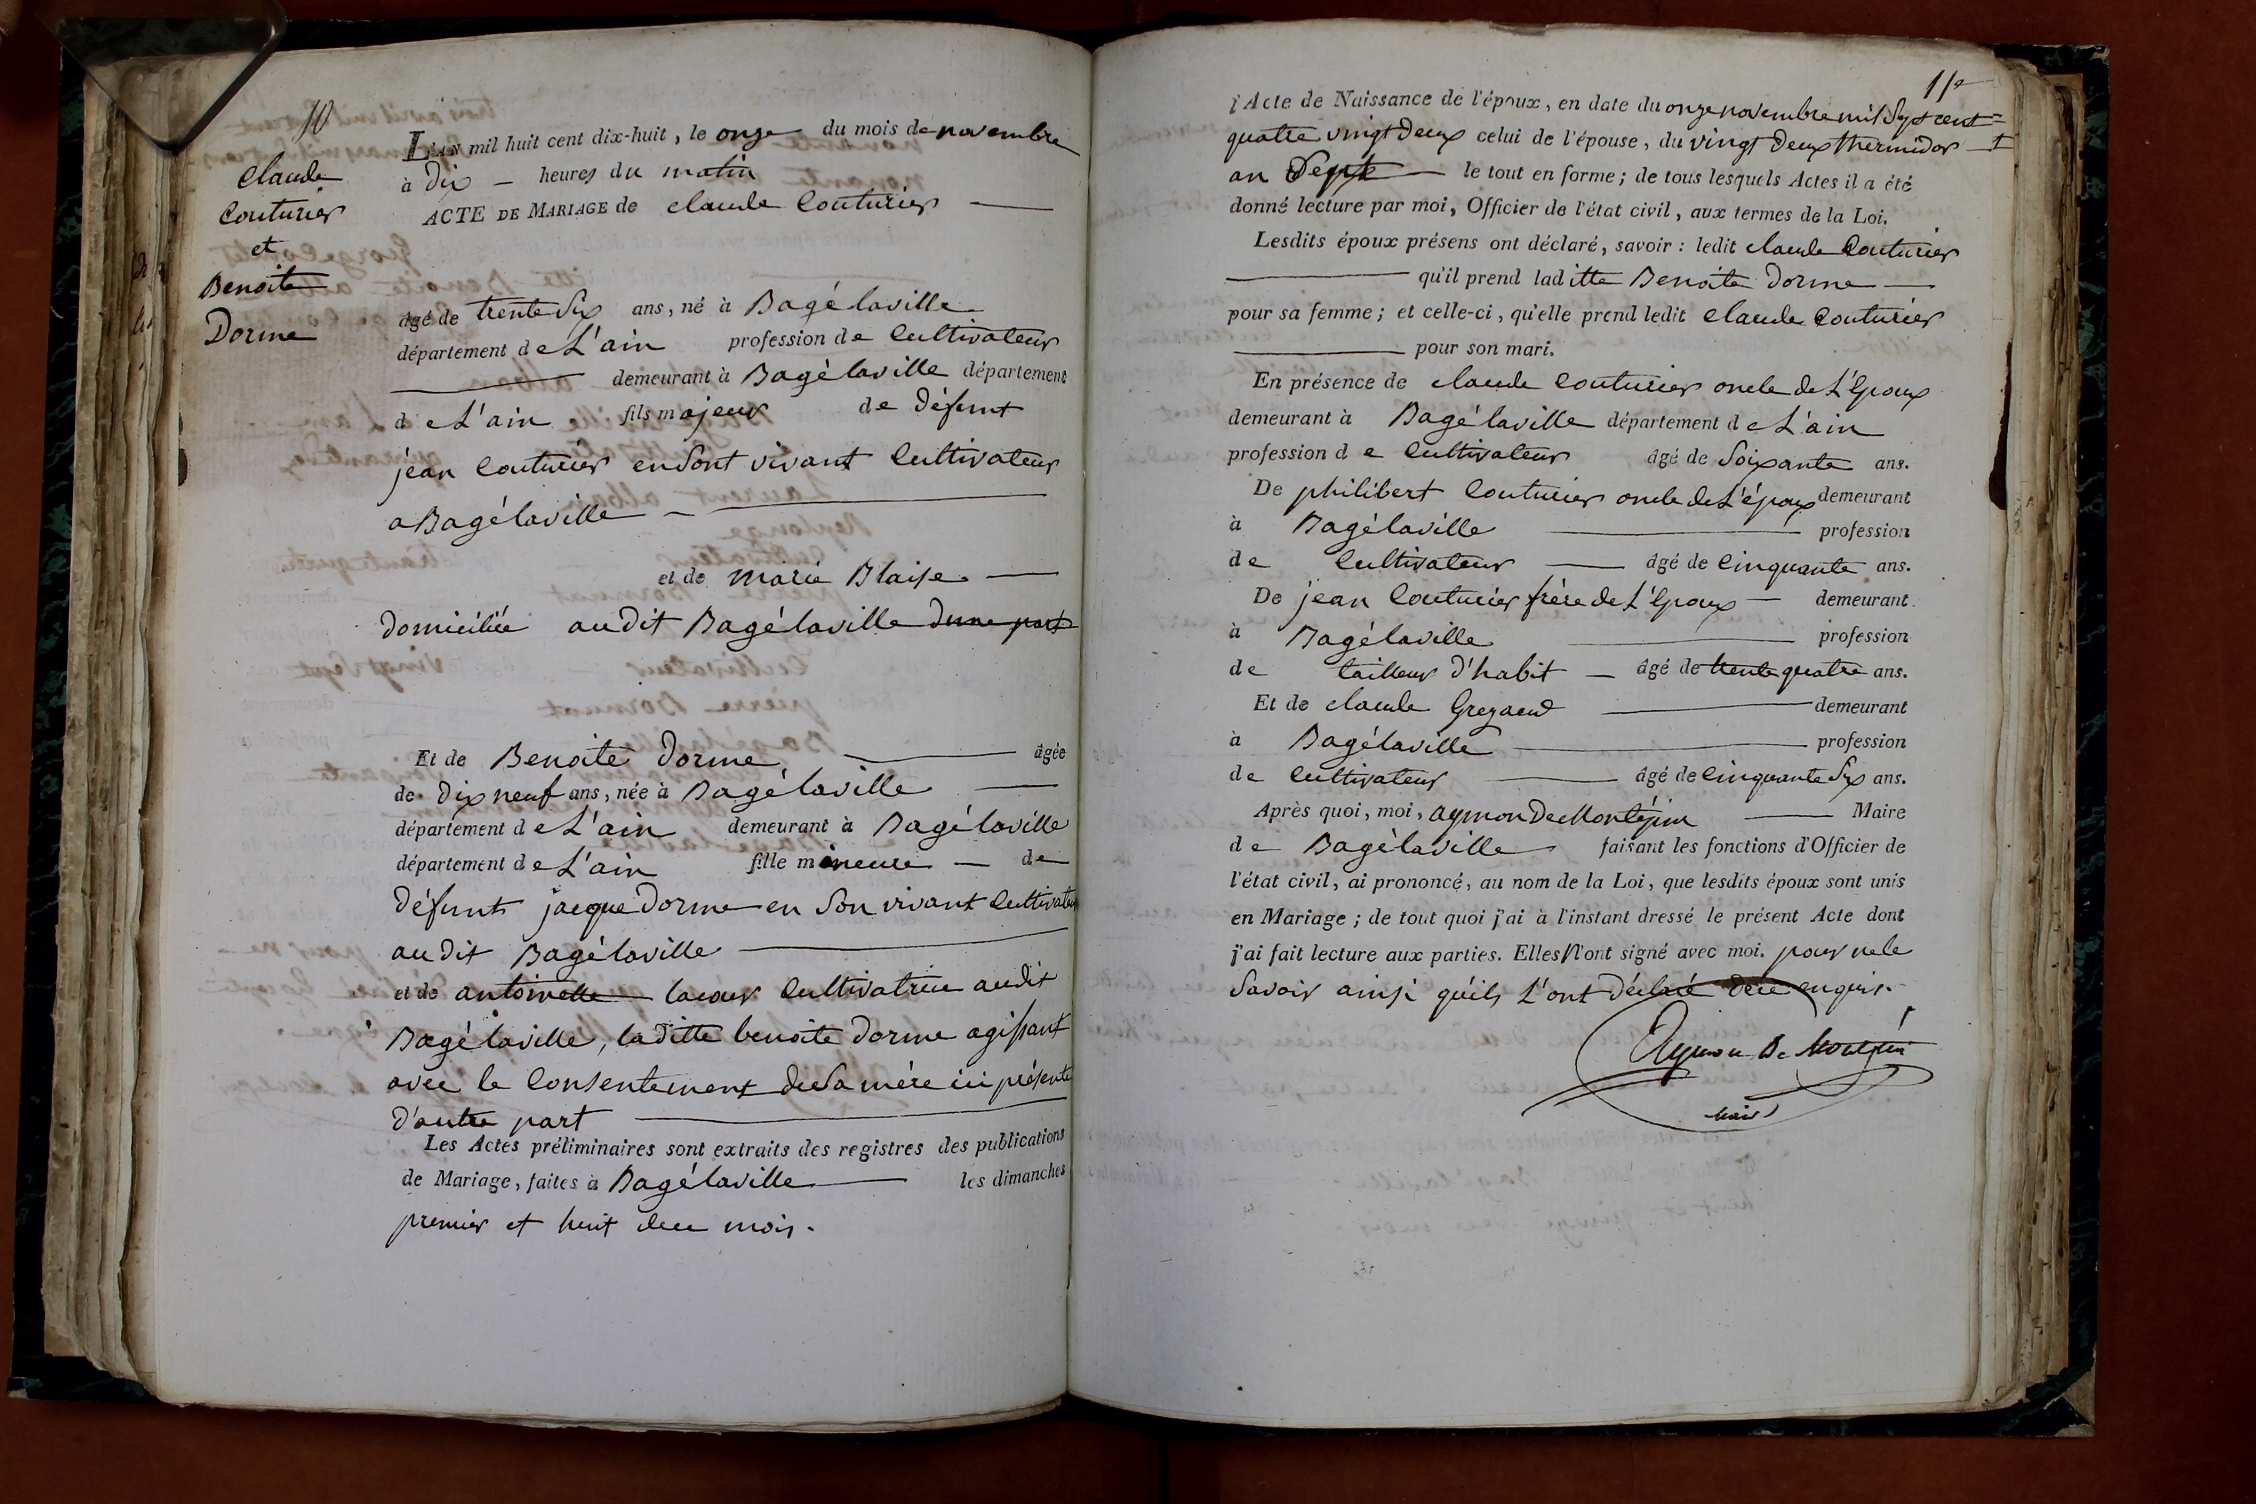 10
claude
couturier
et
Benoite
Dorme
L'AN mil huit cent dix-huit, le onze du mois de novembre
à dix heures du matin
ACTE DE MARIAGE de claude Couturier
âgé de trente six ans, né à Bagé laville
département de L'ain profession de Cultivateur
demeurant à Bagé laville département
de L'ain fils majeur de défunt
jean Couturier en sont vivant Cultivateur
a Bagé laville
et de marie Blaise
domiciliée audit Bagé laville dune part
Et de Benoite Dorme âgée
de dix neuf ans, née à Bagé laville
département de L'ain demeurant à Bagé laville
département de L'ain fille mineure de
défunt jacque Dorme en son vivant Cultivateur
audit Bagé laville
et de antoinette lacour Cultivatrice audit
Bagé laville, laditte benoite Dorme agissant
avec le Consentement de sa mére ici présente
d'autre part
Les Actes préliminaires sont extraits des registres des publications
de Mariage, faites à Bagé laville les dimanches
premier et huit dece mois.
11e
l'Acte de Naissance de l'époux, en date du onze novembre mil sept cent
quatre vingt deux celui de l'épouse, du vingt deux thermidor
an Sept le tout en forme; de tous lesquels Actes il a été
donné lecture par moi, Officier de l'état civil, aux termes de la Loi.
Lesdits époux présens ont déclaré, savoir: ledit claude Couturier
qu'il prend laditte Benoite Dorme
pour sa femme; et celle-ci, qu'elle prend ledit claude Couturier
pour son mari.
En présence de claude Couturier oncle de L'Epoux
demeurant à Bagé laville département de L'ain
profession de Cultivateur âgé de Soixante ans.
De philibert Couturier oncle de L'époux demeurant
à Bagé laville profession
de Cultivateur âgé de Cinquante ans.
De jean Couturier frère de L'Epoux demeurant
à Bagé laville profession
de tailleur d'habit âgé de trente quatre ans.
Et de claude Gregaud demeurant
à Bagé laville profession
de Cultivateur âgé de Cinquante Six ans.
Après quoi, moi, aymon De Montépin Maire
de Bagé laville faisant les fonctions d'Officier de
l'état civil, ai prononcé, au nom de la Loi, que lesdits époux sont unis
en Mariage; de tout quoi j'ai à l'instant dressé le présent Acte dont
j'ai fait lecture aux parties. Elles N'ont signé avec moi. pour ne le
Savoir ainsi quils L'ont déclaré dece enquis.
Aymon De Montépin
Maire